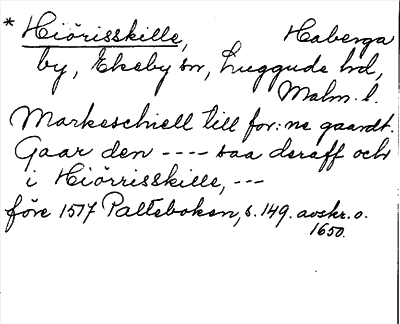 * Hiörisskille, Haberga
by, Ekeby sn, Luggude hd,
Malm. l.
Markeschiell till for:ne gaardt.
Gaar den ---- saa deraff och
i Hiörrisskille, ---
före 1517 Palteboken, s. 149. avskr. o.
1650.